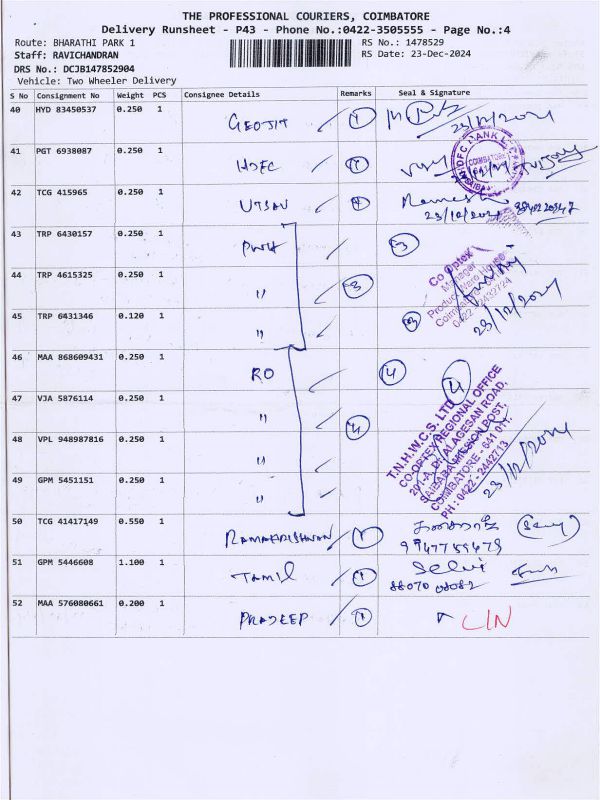 THE PROFESSIONAL COURIERS, COIMBATORE
Delivery Runsheet - P43 - Phone No.:0422-3505555 - Page No.:4
Route: BHARATHI PARK 1 RS No.: 1478529
Staff: RAVICHANDRAN RS Date: 23-Dec-2024
DRS No.: DCJB147852904
Vehicle: Two Wheeler Delivery
S No Consignment No Weight PCS Consignee Details Remarks Seal & Signature
40 HYD 83450537 0.250 1 GEOJIT 1 23/12/2024
41 PGT 6938087 0.250 1 HDFC 1
IDFC BANK LTD
COIMBATORE
42 TCG 415965 0.250 1 UTSAV 1 Ramesh
23/12/2024
43 TRP 6430157 0.250 1 PWH 3
44 TRP 4615325 0.250 1 " 3
Co Optex
Manager
Product Ware House
0422 - 2432724
45 TRP 6431346 0.120 1 " 3 23/12/2024
46 MAA 868609431 0.250 1 RO 4 4
47 VJA 5876114 0.250 1 " 4
48 VPL 948987816 0.250 1 "
49 GPM 5451151 0.250 1 "
T.N.H.W.C.S. LTD
CO-OPTEX REGIONAL OFFICE
201-A, Dr. ALAGESAN ROAD,
SAIBABA MISSION POST,
COIMBATORE - 641 011.
PH : 0422 - 2442713
23/12/2024
50 TCG 41417149 0.550 1 RAMAKRISHNAN 1
51 GPM 5446608 1.100 1 TAMIL 1 Selvi
52 MAA 576080661 0.200 1 PRADEEP 1 L/N